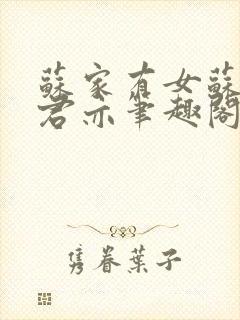 蘇家有女蘇
君亦筆趣閣
隽眷葉子